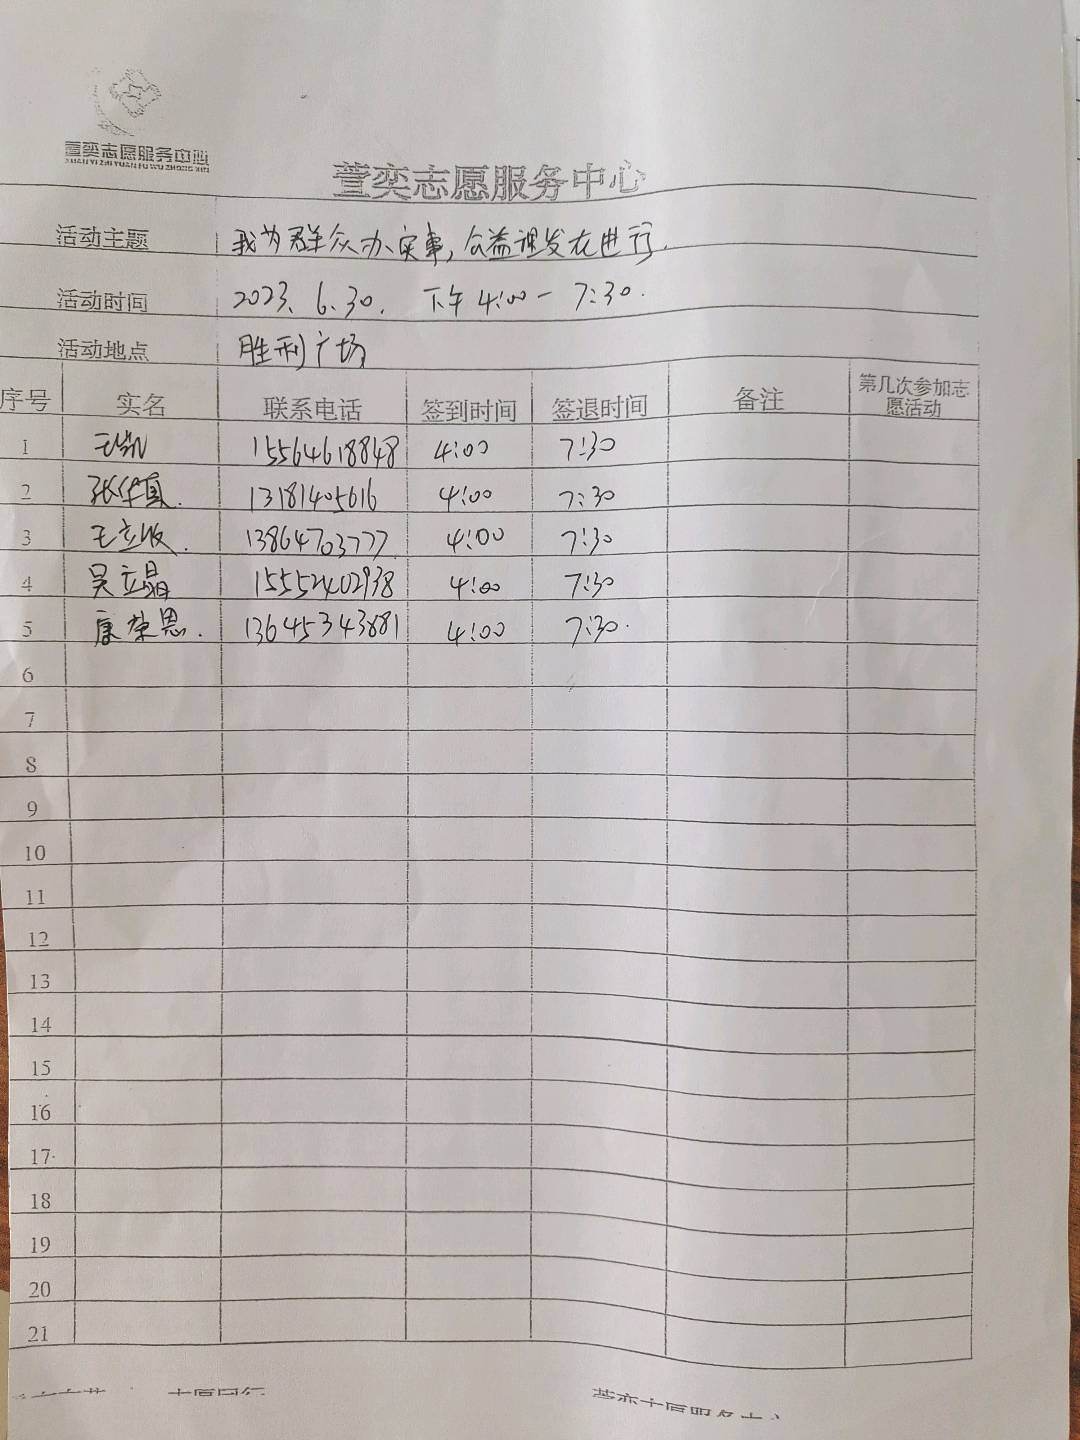 萱奕志愿服务中心
XUAN YI ZHI YUAN FU WU ZHONG XIN
萱奕志愿服务中心
活动主题 我为群众办实事,公益理发在进行.
活动时间 2023.6.30. 下午4:00-7:30.
活动地点 胜利广场
序号 实名 联系电话 签到时间 签退时间 备注 第几次参加志愿活动
1 15564618848 4:00 7:30
2 张华真. 13181405616 4:00 7:30
3 王立 13864703777 4:00 7:30
4 吴立晶 15552402938 4:00 7:30
5 康荣恩. 13645343681 4:00 7:30.
6
7
8
9
10
11
12
13
14
15
16
17
18
19
20
21
志愿同行 萱奕志愿服务中心